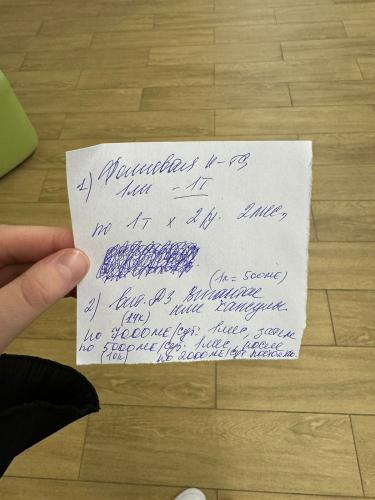 1) Фолиевая к-та
1мг - 1т
по 1т х 2 р. 2 мес,
(1к = 500МЕ)
2) Вит. Д3 Витантое
(14к) или капсулы
по 7000МЕ/сут. 1 мес, затем
по 5000МЕ/сут. 1 мес, после
(10к) по 2000МЕ/сут постоянно.